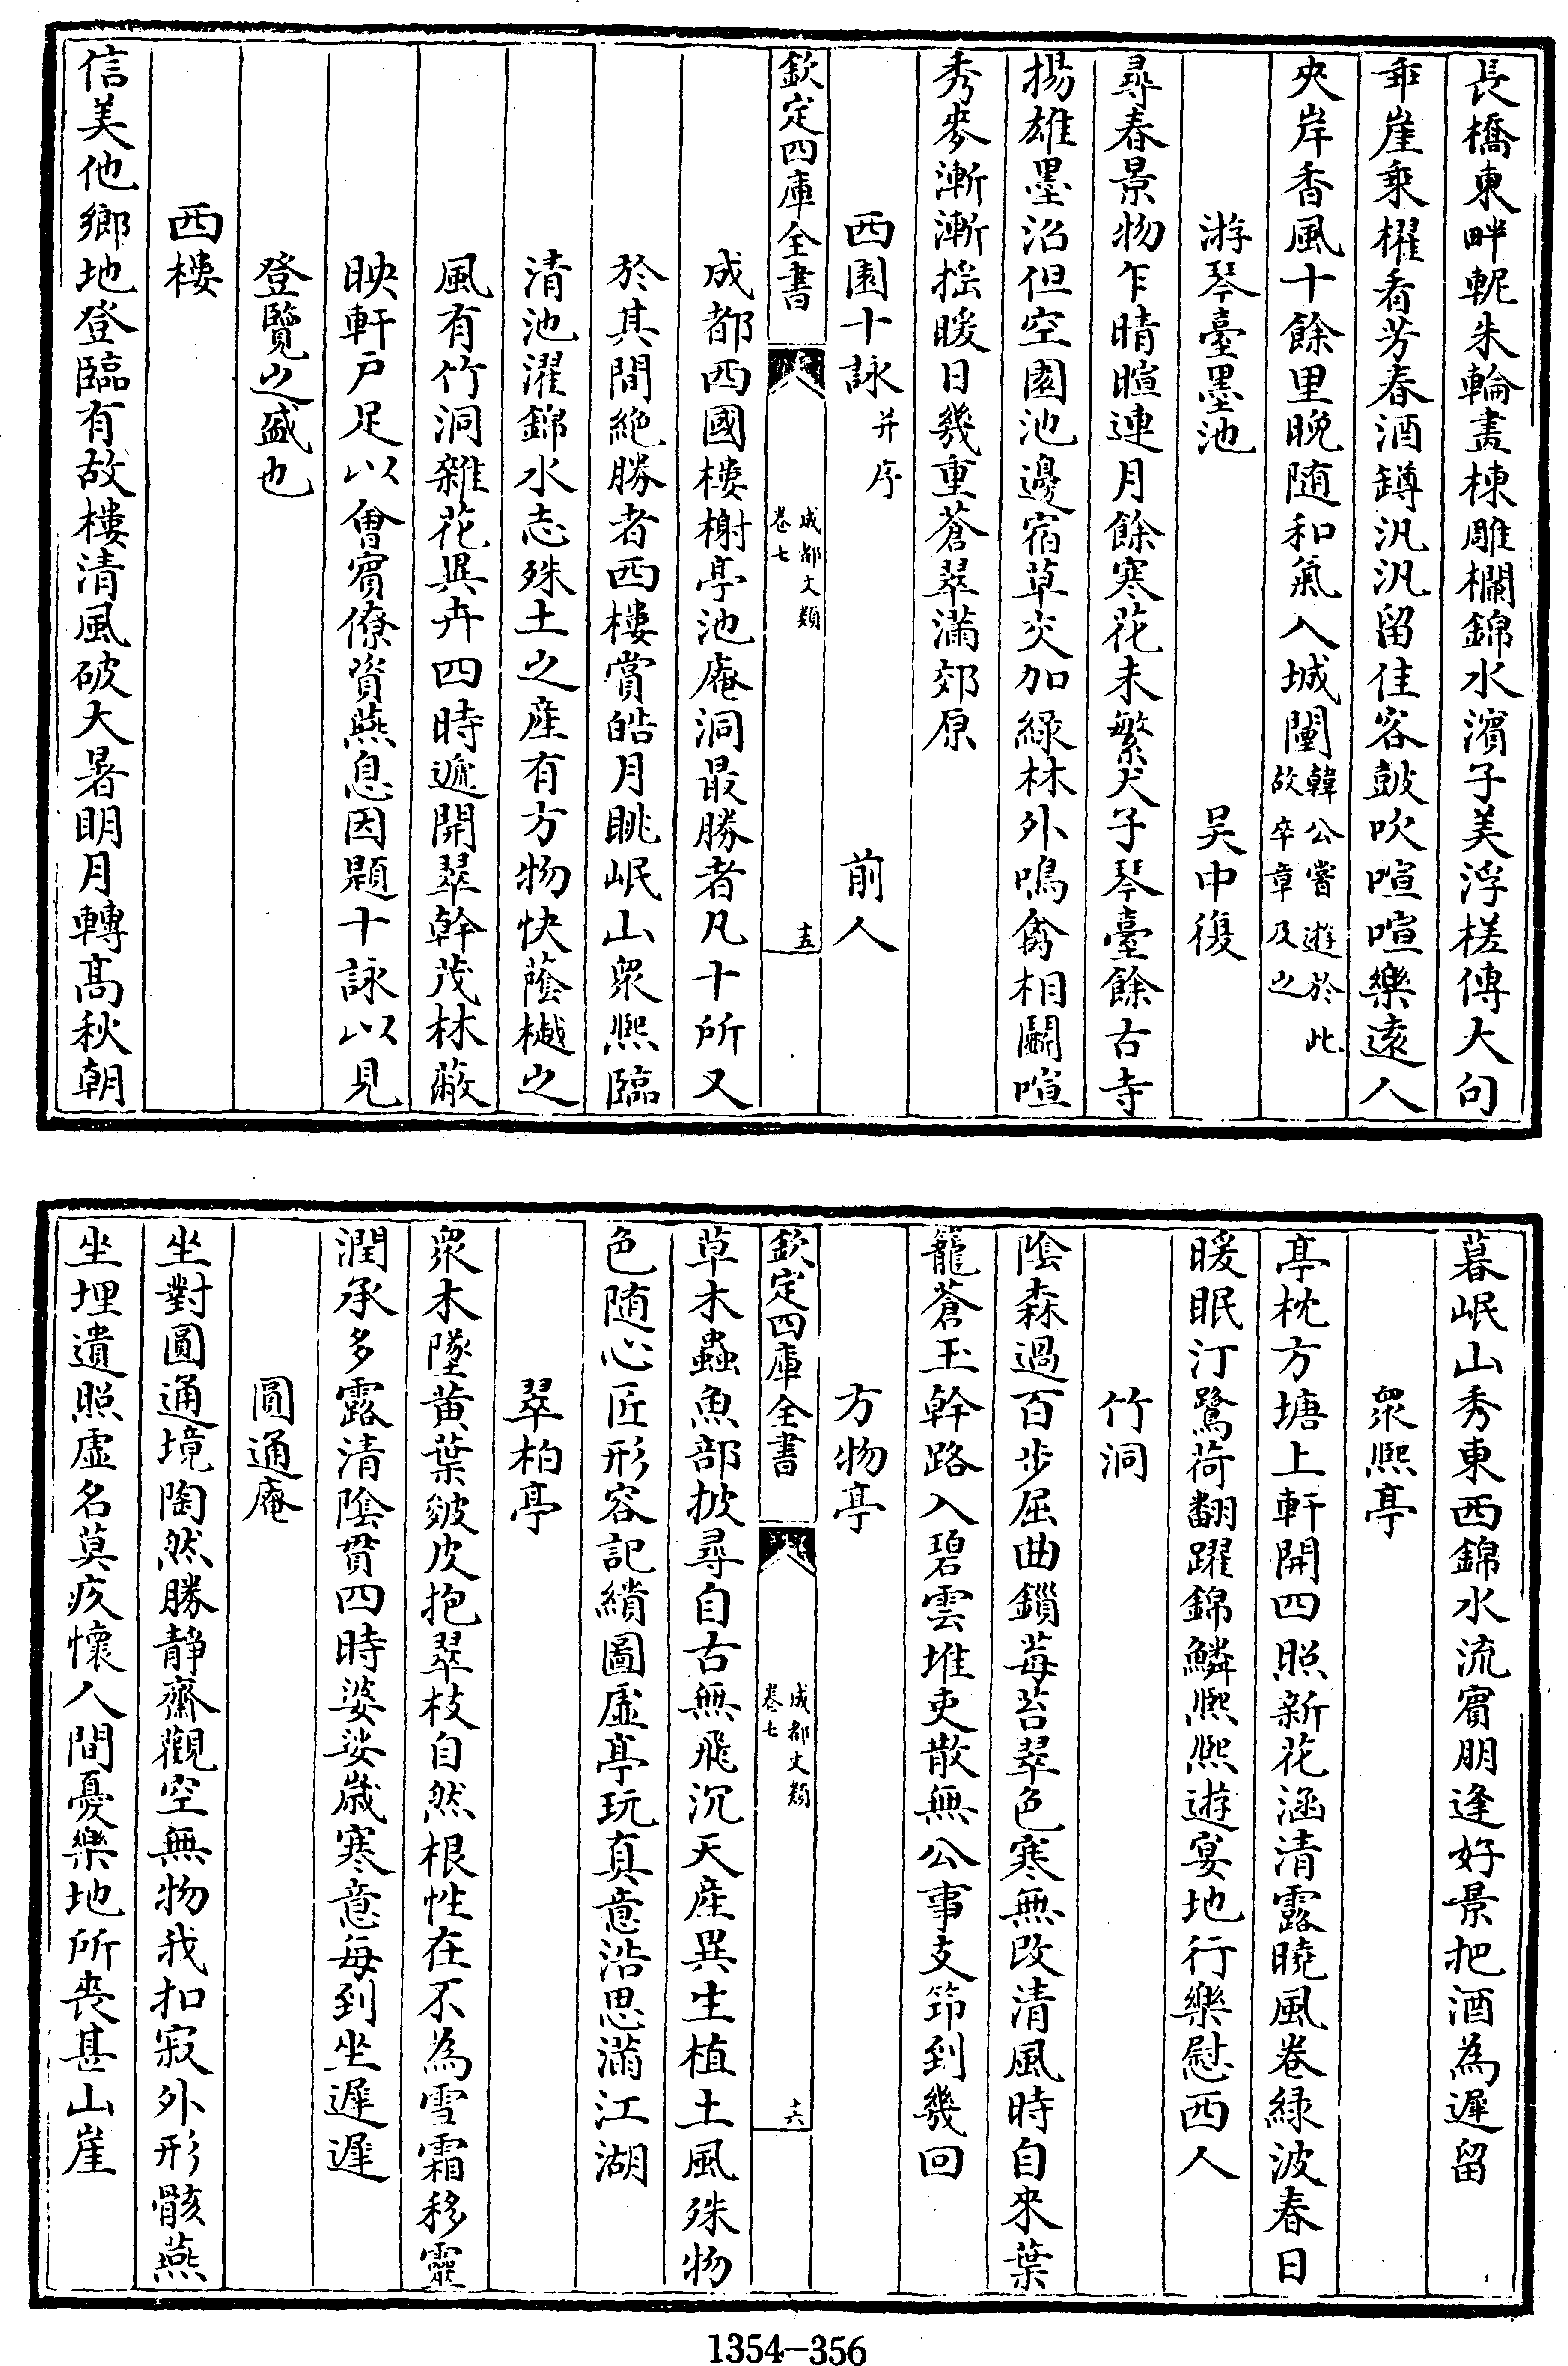 長橋東畔軛朱輪畫棟雕欄錦水濱子美浮槎傳大句
乖崖乘櫂看芳春酒罇汎汎留佳客鼓吹喧喧樂遠人
夾岸香風十餘里晚随和氣入城闉韓公嘗遊於此故卒章及之
游琴臺墨池 吳中復
尋春景物乍晴暄連月餘寒花未繁犬子琴臺餘古寺
揚雄墨沼但空園池邊宿草交加緑林外鳴禽相鬭喧
秀麥漸漸揺暖日幾重蒼翠滿郊原
西園十詠并序 前人
欽定四庫全書 成都文類 卷七 十五
成都西國樓榭亭池庵洞最勝者凡十所又
於其間絶勝者西樓賞皓月眺岷山衆熈臨
清池濯錦水志殊土之産有方物快蔭樾之
風有竹洞雜花異卉四時遞開翠幹茂林蔽
映軒戸足以會賓僚資燕息因題十詠以見
登覽之盛也
西樓
信美他鄉地登臨有故樓清風破大暑明月轉髙秋朝
暮岷山秀東西錦水流賓朋逢好景把酒為遲留
衆熈亭
亭枕方塘上軒開四照新花涵清露曉風卷緑波春日
暖眠汀鷺荷翻躍錦鱗熈熈遊宴地行樂慰西人
竹洞
陰森過百步屈曲鎻莓苔翠色寒無改清風時自來葉
籠蒼玉幹路入碧雲堆吏散無公事支笻到幾回
方物亭
欽定四庫全書 成都文類 卷七 十六
草木蟲魚部披尋自古無飛沉天産異生植土風殊物
色随心匠形容記繢圖虛亭玩真意浩思滿江湖
翠柏亭
衆木墜黄葉皴皮抱翠枝自然根性在不為雪霜移靈
潤承多露清陰貫四時婆娑歲寒意每到坐遲遲
圓通庵
坐對圓通境陶然勝静齋觀空無物我扣寂外形骸燕
坐埋遺照虛名莫疚懷人間憂樂地所喪甚山崖
1354-356